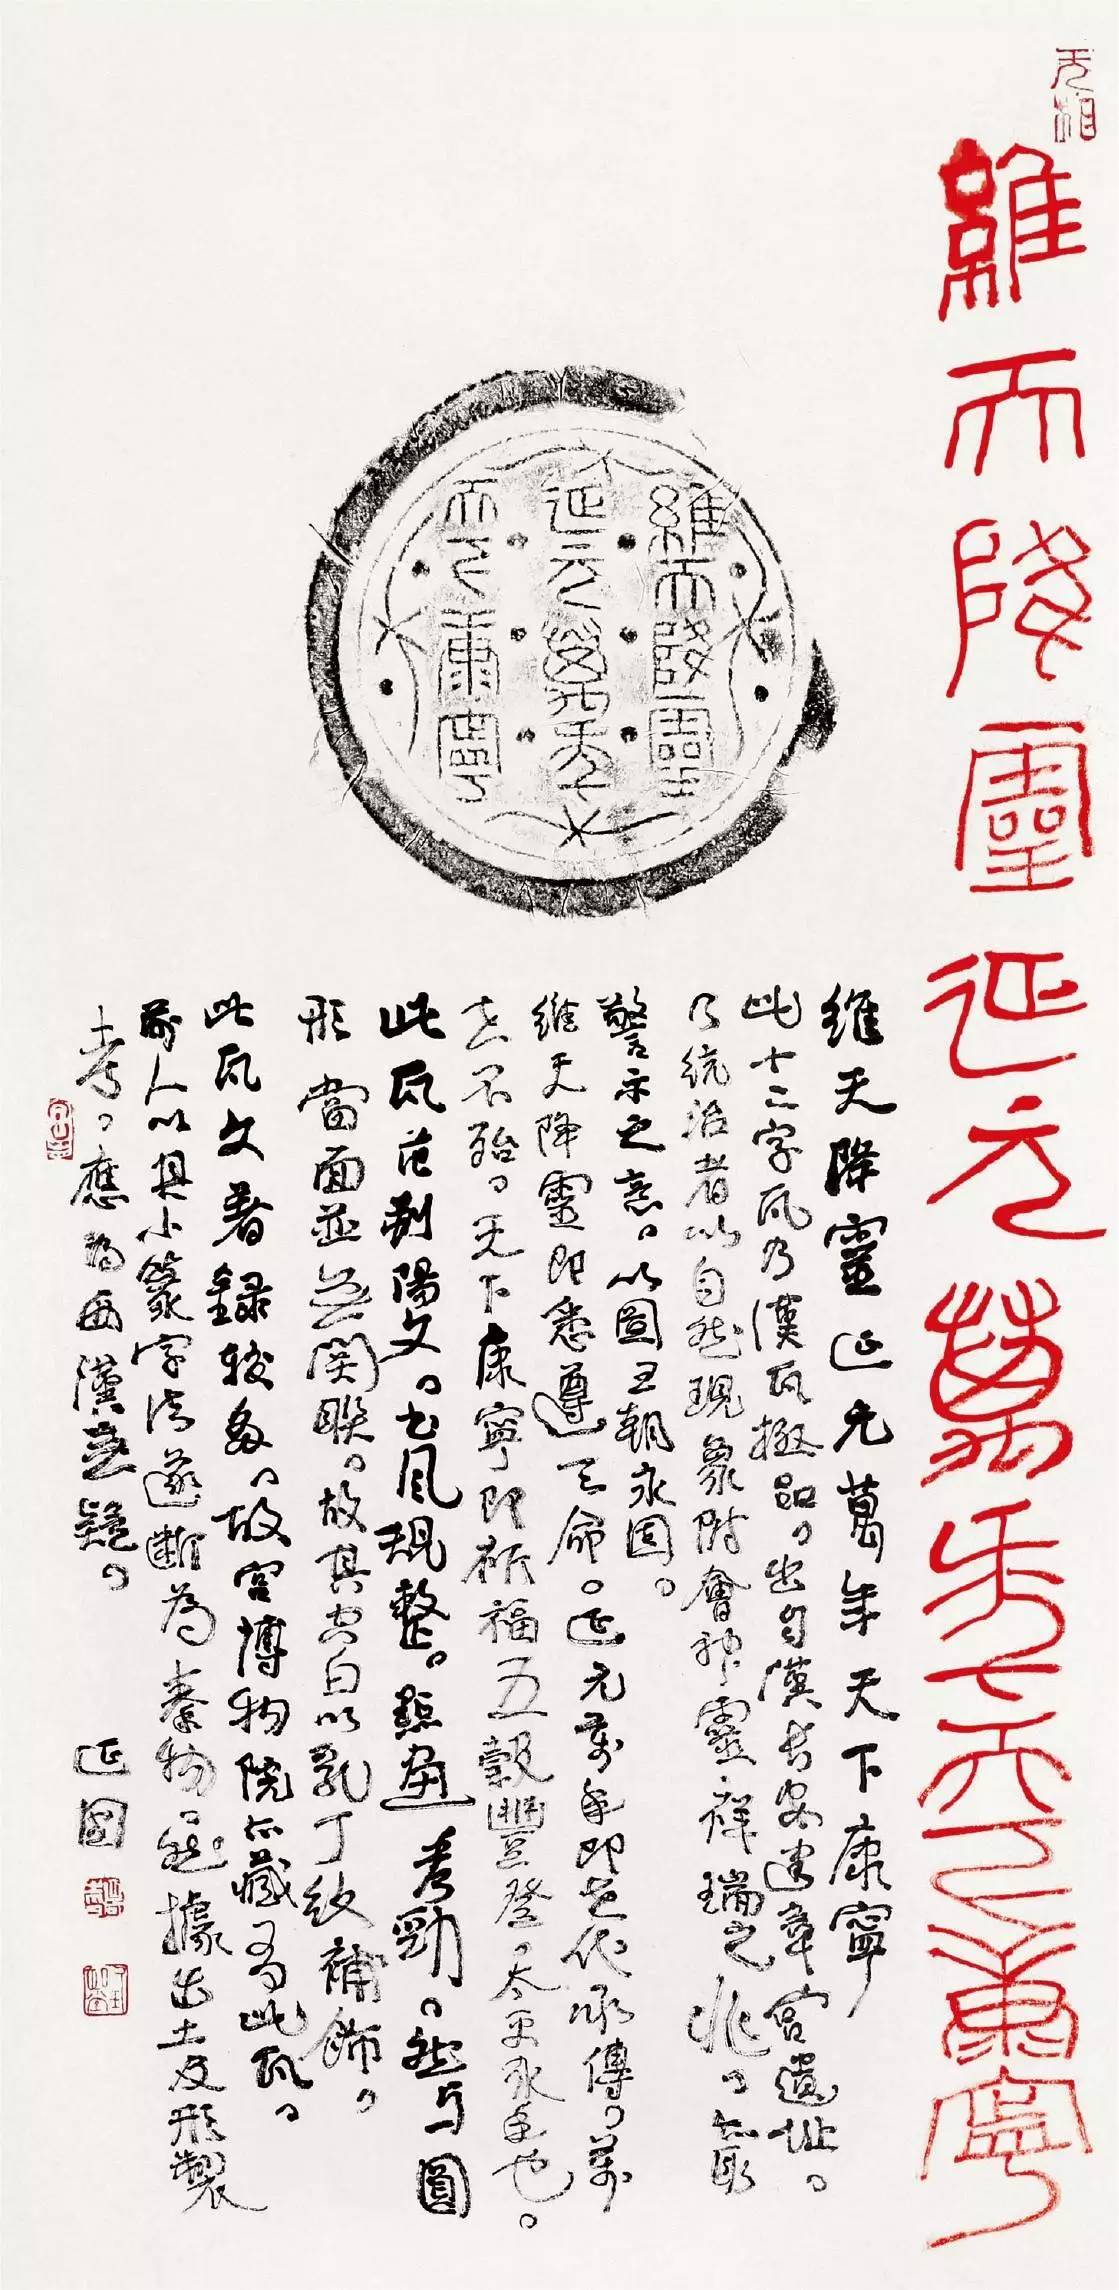 无相
維天降靈延元萬年天下康寧
維天降靈
延元萬年
天下康寧
維天降靈延元萬年天下康寧
此十二字瓦乃漢瓦極品出自漢長安建章宮遺址
乃統治者以自然現象附會神靈祥瑞之兆以最
警示之意以圖王朝永固
維天降靈即悉遵天命延元萬年即世代承傳萬
世不殆天下康寧即祈福五穀豐登太平永年也
此瓦范制陽文書風規整點畫着勁然与圓
形當面並無関聯故其空白以乳丁紋補飾
此瓦文著錄較多故宮博物院亦藏有此瓦
前人以其小篆字法遂斷為秦物然據出土及形製
考應為西漢無疑
延園